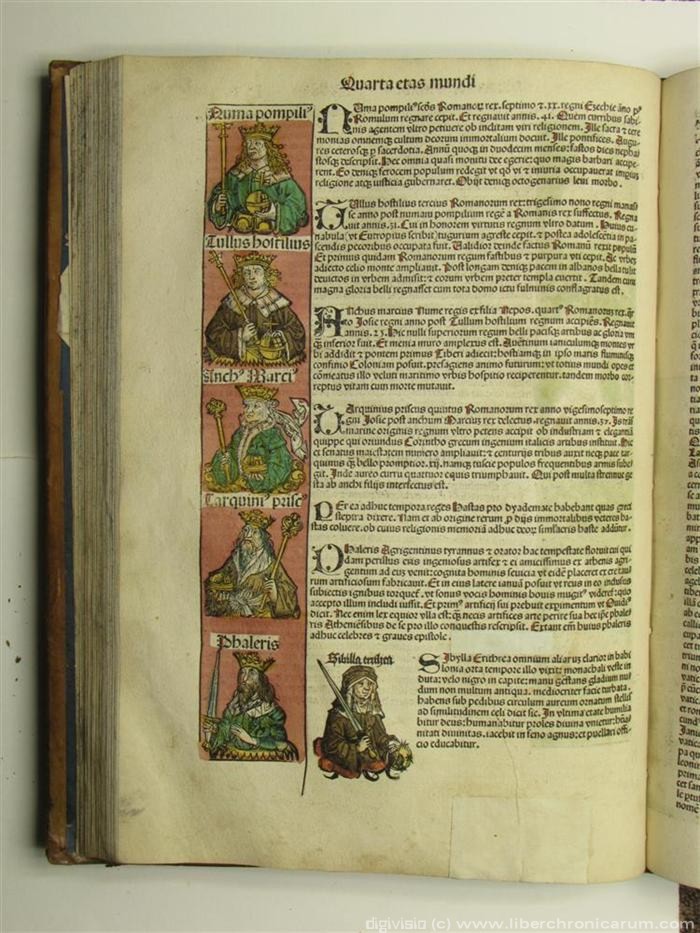 Quarta etas mundi
Numa pompiliꝰ
NUma pompiliꝰ scd̓s Romanoꝝ rex. septimo ⁊ .xx. regni Ezechie
Romulum regnare cepit. Et regnauit annis .41. Quem curribus sabi
nis agentem vltro petiuere ob inclitam viri religionem. Ille sacra ⁊ cere
monias omnemqꝫ cultum deorum immortalium docuit. Ille pontifices. Augu
res ceterosqꝫ sacerdotia. Annū quoqꝫ in duodecim menses: fastos dies
stosqꝫ descripsit. Hec omnia quasi monitu dee egerie: quo magis barbari accipe
rent. Eo deniqꝫ ferocem populum redegit vt qd̓ vi ⁊ iniuria occupauerat
religione atqꝫ iusticia gubernaret. Obijt deniqꝫ octogenarius leui morbo.
Tullus hostilius
TUllus hostilius tercius Romanorum rex: trigesimo nono regni manas
se anno post numam pompilium regē a Romanis rex suffectus. Regna
uit annis .31. Cui in honorem virtutis regnum vltro datum. Huius cu
nabula (vt Eutropius scribit) tugurium agreste cepit. ⁊ postea adolescētia in pa
scendis pecoribus occupata fuit. Validior deinde factus Romanū rexit populū
Et primus quidam Romanorum regum fastibus ⁊ purpura vti cepit. Ac vrbē
adiecto celio monte ampliauit. Post longam deniqꝫ pacem in albanos bella tulit
deuictos in vrbem admisit: ⁊ eorum vrbem preter templa euertit. Tandem cum
magna gloria belli regnasset cum tota domo ictu fulminis conflagratus est.
Anchꝰ Marciꝰ
ANchus marcius Nume regis ex filia Nepos. quartꝰ Romanoꝝ rex.
to Josie regni anno post Tullum hostilium regnum accipiēs. Regnauit
annis .23. Hic nulli superiorum regum belli pacisqꝫ artibus ac gloria
inferior fuit. Et menia muro amplexus est. Auētinum ianiculumqꝫ montes vr
bi addidit ⁊ pontem primus Tiberi adiecit: hostiamqꝫ in ipso maris fluminisqꝫ
confinio Coloniam posuit. presagiens animo futurum: vt totius mundi opes ⁊
cōmeatus illo veluti maritimo vrbis hospitio reciperentur. tandem morbo cor
reptus vitam cum morte mutauit.
Tarquiniꝰ priscꝰ
TArquinius priscus quintus Romanorum rex anno vigesimoseptimo re
gni Josie post anchum Marcius rex delectus. regnauit annis .37.
marine originis regnum vltro petens accipit ob industriam ⁊ elegantiā
quippe qui oriundus Corintho grecum ingenium italicis artibus instituit. Hic
et senatus maiestatem numero ampliauit: ⁊ centurijs tribus auxit neqꝫ pace tar
quinius qꝫ bello promptior. xij. namqꝫ tuscie populos frequentibus armis sube
git. Inde aureo curru quattuor equis triumphauit. Qui post multa strennue ge
sta ab anchi filijs interfectus est.
PEr ea adhuc tempora reges Hastas pro Dyademate habebant quas greci
sceptra dixere. Nam et ab origine rerum p dijs immortalibus veteres ha
stas coluere. ob cuius religionis memoriā adhuc deoꝝ simlacris haste addūtur.
Phaleris
PHaleris Agrigentinus tyrannus ⁊ orator hac tempestate floruit cui qui
dam perillus eius ingeniosus artifex ⁊ ei amicissimus ex athenis agri
gentum ad eū venit: cognita hominis seuicia vt eidē placeret ex ere tau
rum artificiosum fabricauit. Et in eius latere ianuā posuit vt reus in eo inclusus
subiectis ignibus torqueret̄. vt sonus vocis hominis bouis mugitꝰ videret̄: quo
accepto illum includi iussit. Et primꝰ artificij sui prebuit experimentum vt Ouidiꝰ
dicit. Nec enim lex equior vlla est: qꝫ necis artifices arte perire sua
ris Atheniēsibus de se pro illo conquestis rescripsit. Extant eiꝰ huius phaleris
adhuc celebres ⁊ graues epistole.
Sibilla erithea
SIbylla Erithrea omnium aliarꝝ clarior: in babi
lonia orta tempore illo vixit: monachali veste in
duta: velo nigro in capite: manu gestans gladium nu
dum non multum antiqua. mediocriter facie turbata.
habens sub pedibus circulum aureum ornatum stellis
ad similitudinem celi dicit sic. In vltima etate humilia
bitur deus: humanabitur proles diuina vnietur: hūa
nitati diuinitas. iacebit in feno agnus: et puellari offi
cio educabitur.
digivisio (c) www.liberchronicarum.com